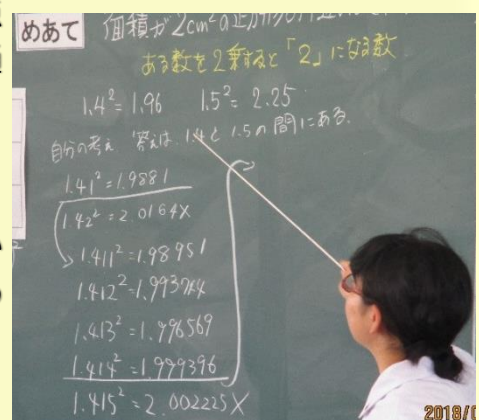 めあて 面積が2cm²の正方形の
ある数を2乗すると「2」になる数
1.4²=1.96 1.5²=2.25
自分の考え 答えは、1.4と1.5の間にある。
1.41²=1.9881
1.42²=2.0164X
1.411²=1.98951
1.412²=1.993744
1.413²=1.996569
1.414²=1.999396
1.415²=2.002225X
2018/0